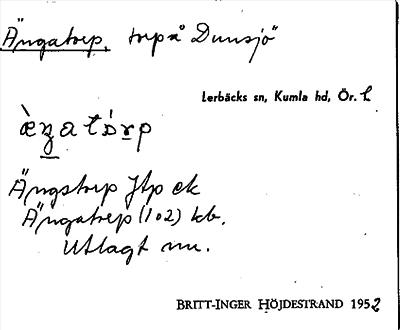 Ängatorp, torp å Dunsjö
Lerbäcks sn, Kumla hd, Ör. l.
æ̀ŋatɷ́rp
Ängstorp Jtp ek
Ängatorp (1 02) kb.
Utlagt nu.
BRITT-INGER HÖJDESTRAND 1952